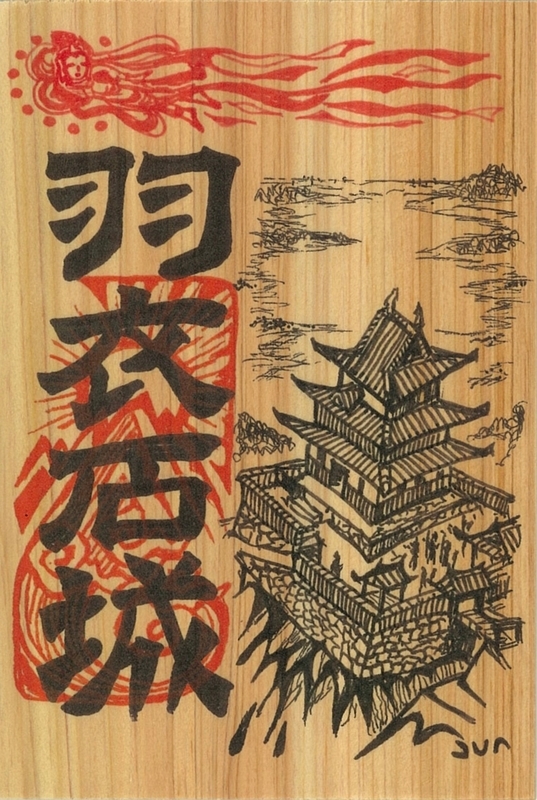 羽衣石城
Jun